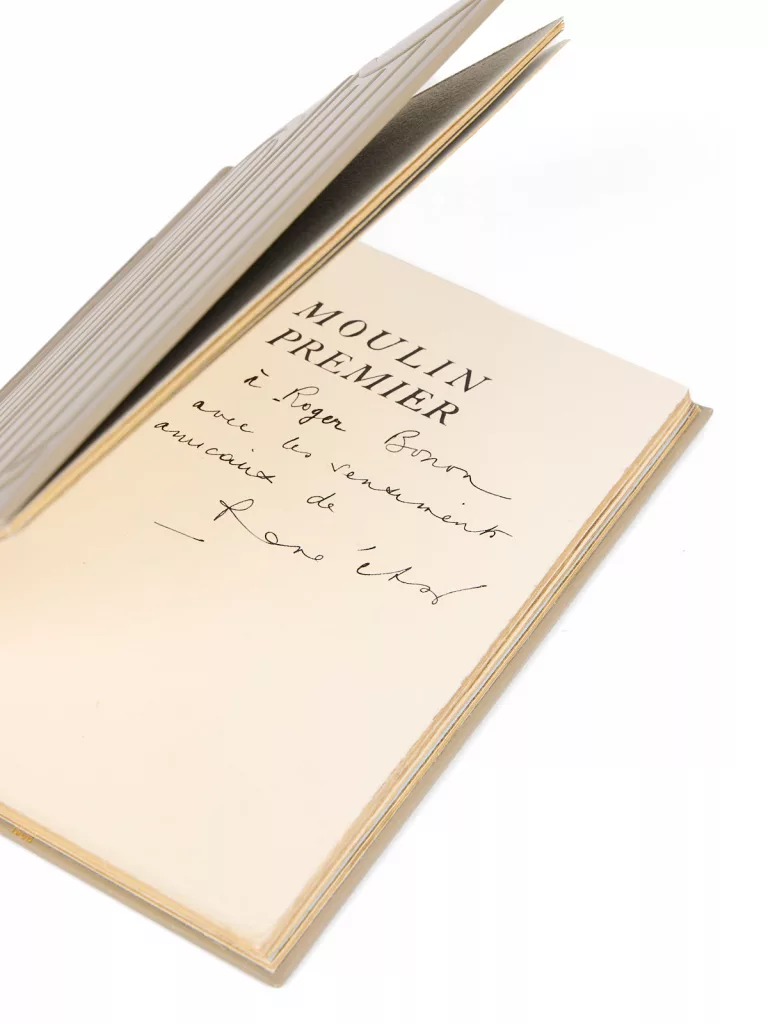 MOULIN
PREMIER
à Roger Bonon
avec les sentiments
amicaux de
René Char